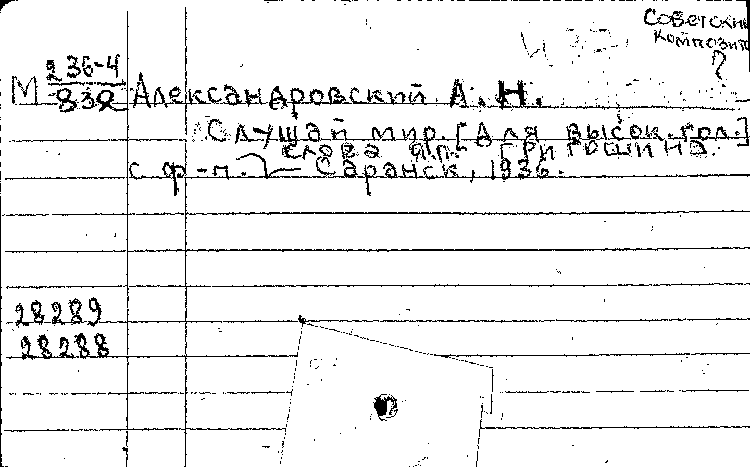 Советский
композит
?
М 236-4
832
Александровский А. Н.
Слушай мир. [Для высок. гол.]
слова
с ф-п. — Саранск, 1936.
28289
28288